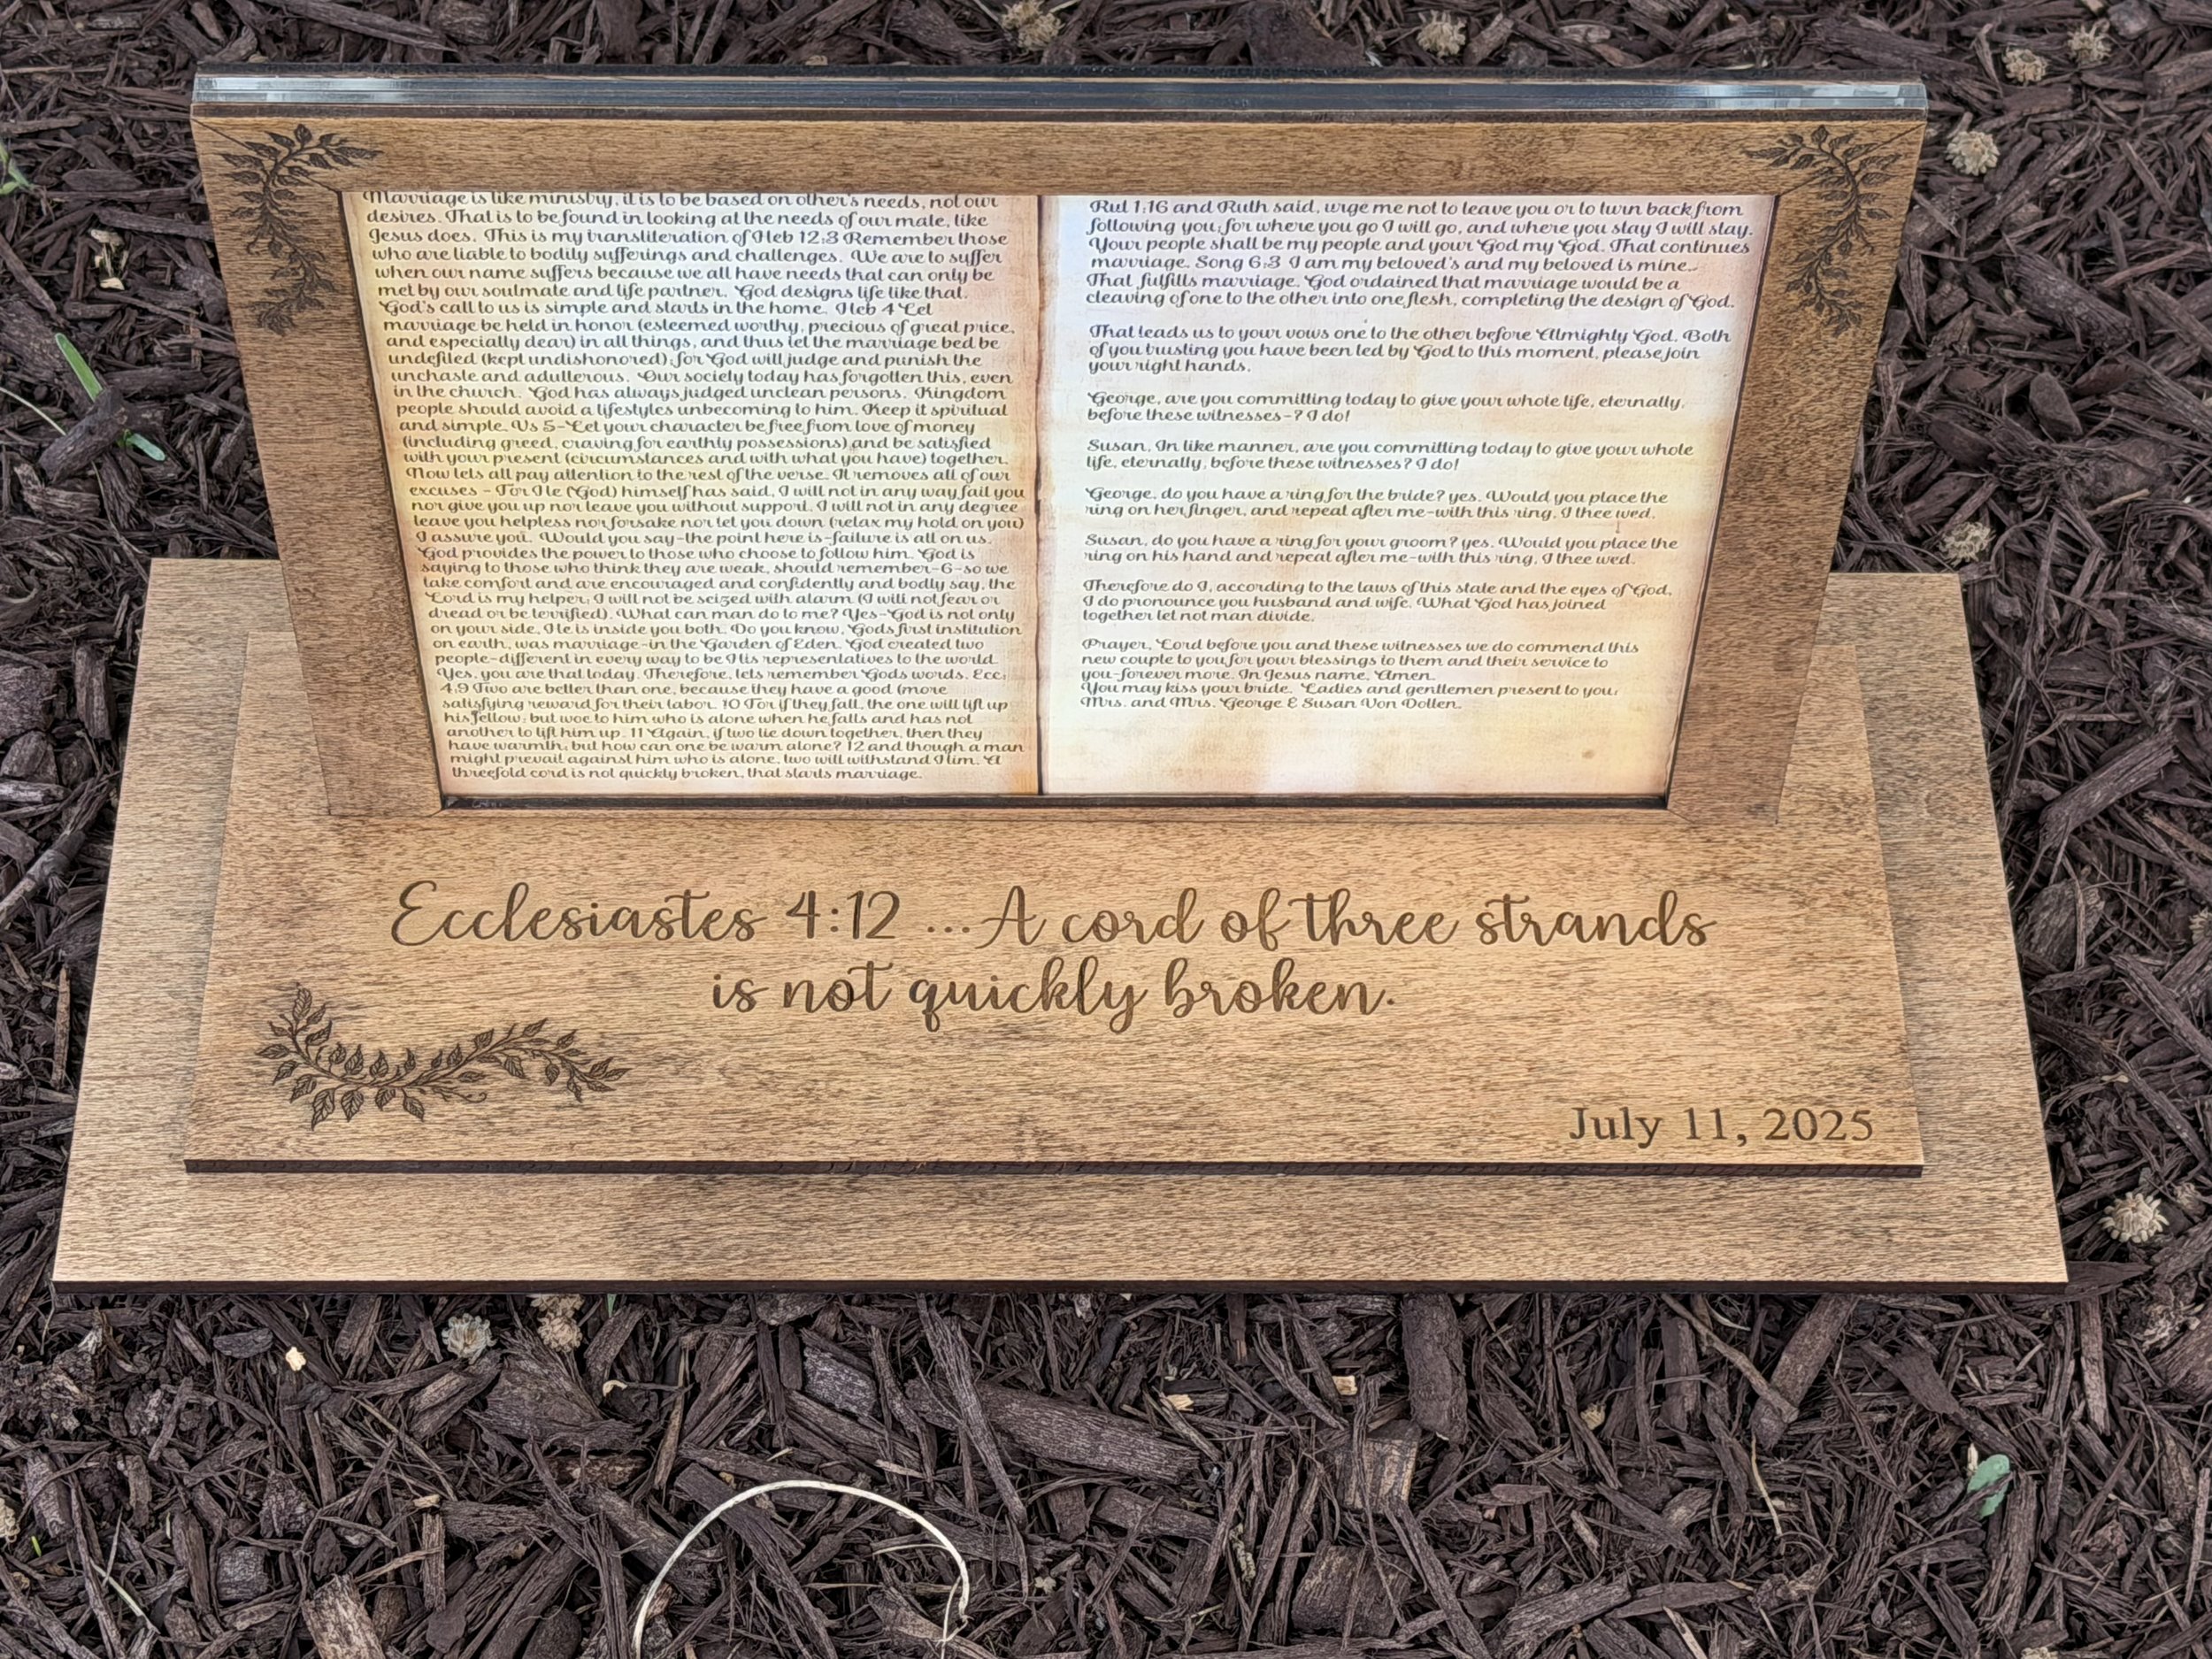 Marriage is like ministry, it is to be based on other's needs, not our
desires. That is to be found in looking at the needs of our mate, like
Jesus does. This is my transliteration of Heb 12:3 Remember those
who are liable to bodily sufferings and challenges. We are to suffer
when our name suffers because we all have needs that can only be
met by our soulmate and life partner. God designs life like that.
God's call to us is simple and starts in the home. Heb 4 Let
marriage be held in honor (esteemed worthy, precious of great price,
and especially dear) in all things, and thus let the marriage bed be
undefiled (kept undishonored); for God will judge and punish the
unchaste and adulterous. Our society today has forgotten this, even
in the church. God has always judged unclean persons. Kingdom
people should avoid a lifestyles unbecoming to him. Keep it spiritual
and simple. Vs 5-Let your character be free from love of money
(including greed, craving for earthly possessions) and be satisfied
with your present (circumstances and with what you have) together.
Now lets all pay attention to the rest of the verse. It removes all of our
excuses - For He (God) himself has said, I will not in any way fail you
nor give you up nor leave you without support. I will not in any degree
leave you helpless nor forsake nor let you down (relax my hold on you)
I assure you. Would you say-the point here is-failure is all on us.
God provides the power to those who choose to follow him. God is
saying to those who think they are weak, should remember-6-so we
take comfort and are encouraged and confidently and bodly say, the
Lord is my helper; I will not be seized with alarm (I will not fear or
dread or be terrified). What can man do to me? Yes-God is not only
on your side, He is inside you both. Do you know, Gods first institution
on earth, was marriage-in the Garden of Eden. God created two
people-different in every way to be His representatives to the world.
Yes, you are that today. Therefore, lets remember Gods words. Ecc:
4:9 Two are better than one, because they have a good (more
satisfying reward for their labor. 10 For if they fall, the one will lift up
his fellow; but woe to him who is alone when he falls and has not
another to lift him up. 11 Again, if two lie down together, then they
have warmth; but how can one be warm alone? 12 and though a man
might prevail against him who is alone, two will withstand Him. A
threefold cord is not quickly broken, that starts marriage.
Rut 1:16 and Ruth said, urge me not to leave you or to turn back from
following you; for where you go I will go, and where you stay I will stay.
Your people shall be my people and your God my God. That continues
marriage. Song 6:3 I am my beloved's and my beloved is mine..
That fulfills marriage. God ordained that marriage would be a
cleaving of one to the other into one flesh, completing the design of God.
That leads us to your vows one to the other before Almighty God. Both
of you trusting you have been led by God to this moment, please join
your right hands.
George, are you committing today to give your whole life, eternally,
before these witnesses-? I do!
Susan, In like manner, are you committing today to give your whole
life, eternally, before these witnesses? I do!
George, do you have a ring for the bride? yes. Would you place the
ring on her finger, and repeat after me-with this ring, I thee wed.
Susan, do you have a ring for your groom? yes. Would you place the
ring on his hand and repeat after me-with this ring, I thee wed.
Therefore do I, according to the laws of this state and the eyes of God,
I do pronounce you husband and wife. What God has joined
together let not man divide.
Prayer, Lord before you and these witnesses we do commend this
new couple to you for your blessings to them and their service to
you-forever more. In Jesus name, Amen.
You may kiss your bride. Ladies and gentlemen present to you;
Mrs. and Mrs. George & Susan Von Dollen.
Ecclesiastes 4:12 ...A cord of three strands
is not quickly broken.
July 11, 2025